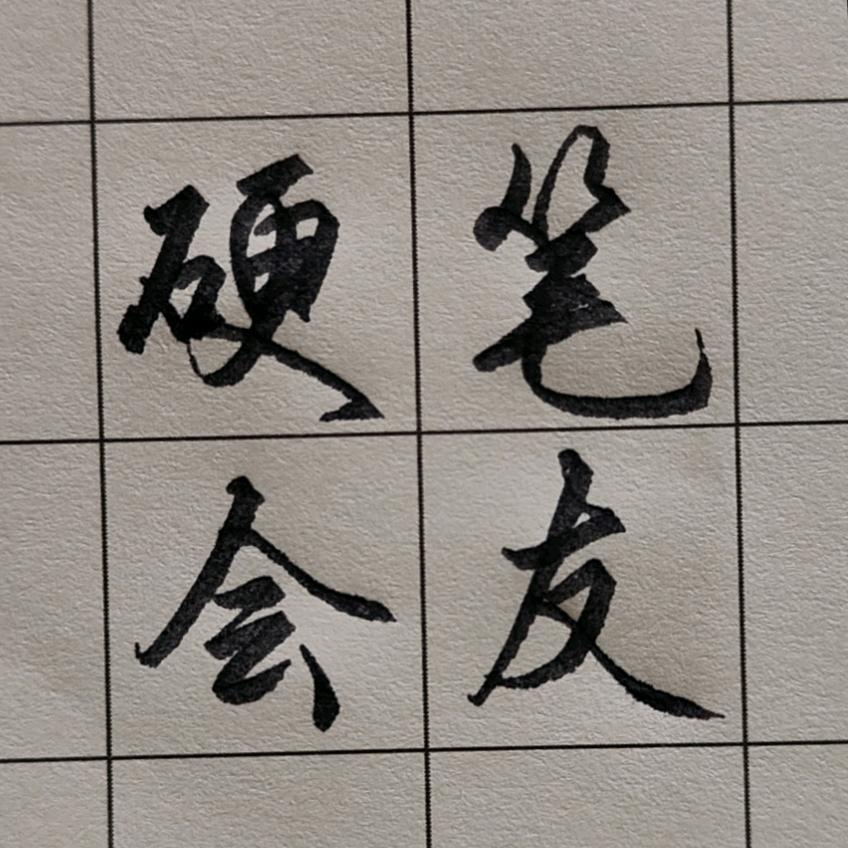 硬笔
会友